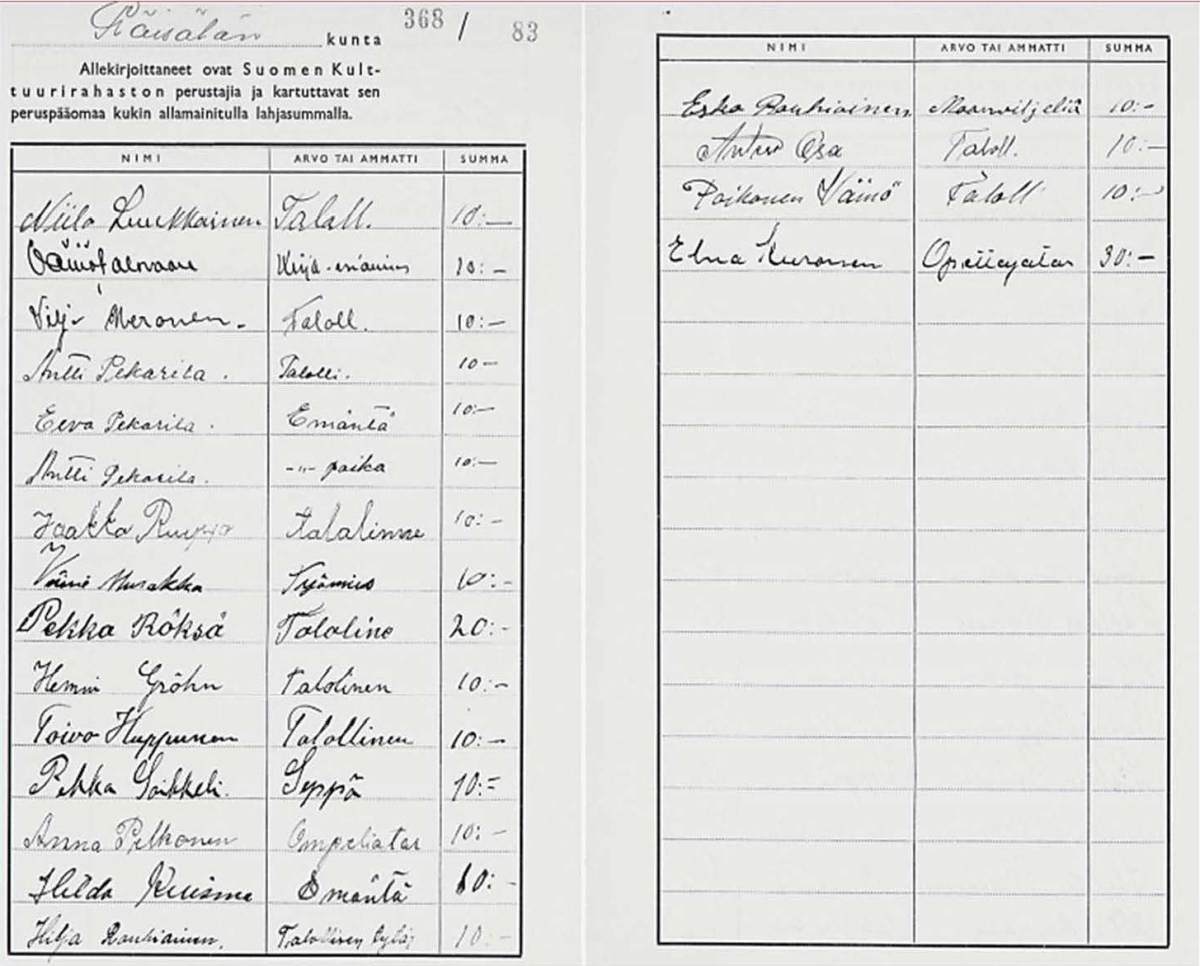 Räisälän kunta 368 / 83
Allekirjoittaneet ovat Suomen Kult-
tuurirahaston perustajia ja kartuttavat sen
peruspääomaa kukin allamainitulla lahjasummalla.
NIMI ARVO TAI AMMATTI SUMMA
Niilo Luukkainen Talall. 10:—
10:—
Meronen. Taloll. 10:—
Antti Pekarila. Talolli. 10—
Eeva Pekarila. Emäntä 10:—
Antti Pekarila. -"- poika 10:—
Jaakko 10:—
Väinö Murakka Työmies 10:-
Pekka Röksä Tololine 20:-
Gröhn Talolinen 10:-
Toivo Huppunen Talollinen 10:—
Pekka Soikkeli. Seppä 10:=
Anna Pelkonen Ompeliatar 10:—
Hilda Kuisma Emäntä 10:-
Hilja Rouhiainen. Talollisen 10:—
NIMI ARVO TAI AMMATTI SUMMA
Esko Rouhiainen Maanviljeliä 10:-
Osa Taloll. 10:—
Poikonen Väinö Taloll 10:—
Elna Kuronen Opettajatar 30:—